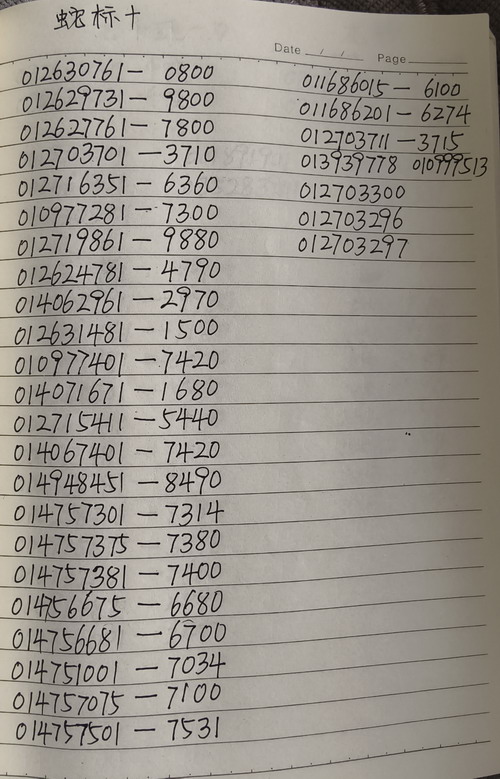 蛇标十
Date / / Page
012630761— 0800
012629731— 9800
012627761— 7800
012703701—3710
012716351—6360
010977281—7300
012719861—9880
012624781—4790
014062961—2970
012631481—1500
010977401—7420
014071671—1680
012715411—5440
014067401—7420
014948451—8490
014757301—7314
014757375—7380
014757381—7400
014756675—6680
014756681—6700
014751001—7034
014757075—7100
014757501—7531
011686015—6100
011686201—6274
012703711—3715
013939778 010999513
012703300
012703296
012703297